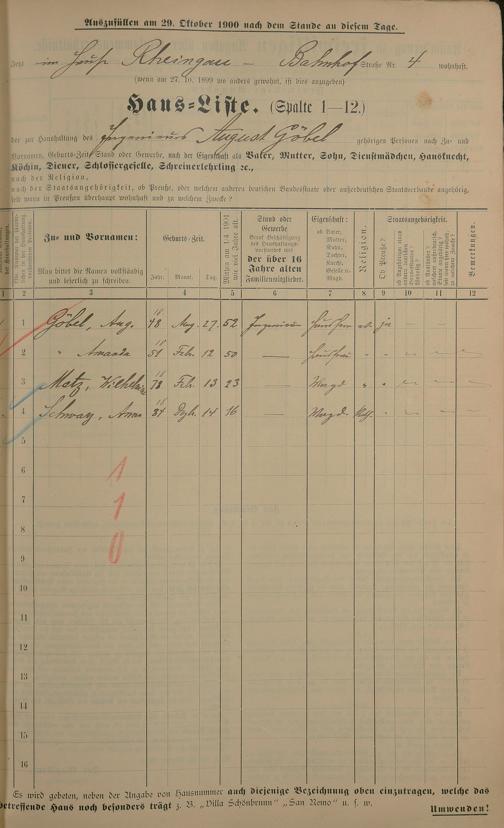 Auszufüllen am 29. Oktober 1900 nach dem Stande an diesem Tage.
Jetzt im Hause Rheingau – Bahnhof Straße Nr. 4 wohnhaft.
(wenn am 27. 10. 1899 wo anders gewohnt, ist dies anzugeben)
Haus-Liste. (Spalte 1—12.)
der zur Haushaltung des Ingenieurs August Göbel gehörigen Personen nach Zu- und
Vornamen, Geburts-Zeit, Stand oder Gewerbe, nach der Eigenschaft als Vater, Mutter, Sohn, Dienstmädchen, Hausknecht,
Köchin, Diener, Schlossergeselle, Schreinerlehrling ꝛc.,
nach der Religion,
nach der Staatsangehörigkeit, ob Preuße, oder welchem anderen deutschen Bundesstaate oder außerdeutschen Staatsverbande angehörig,
seit wann in Preußen überhaupt wohnhaft und zu welchem Zwecke?
Zu- und Vornamen:
Man bittet die Namen vollständig und leserlich zu schreiben.
Geburts-Zeit.
Jahr. Monat. Tag.
Stand oder Gewerbe
der über 16 Jahre alten Familienmitglieder.
Eigenschaft:
ob Vater, Mutter, Sohn, Tochter, Knecht, Geselle o. Magd.
Religion.
Staatsangehörigkeit.
Ob Preuße?
Bemerkungen.
1 2 3 4 5 6 7 8 9 10 11 12
1 Göbel, Aug. 1848 Aug. 27. 52 Ingenieur ev. ja
2 " Amanda 1851 Febr. 12 50 — Hausfrau " " — — —
3 Metz, Wilhelmine 1878 Febr. 13 23 — Magd " " — — —
4 Anna 1884 14 16 — Magd. Kath. " — — —
5
6
1
7
1
8
0
9
10
11
12
13
14
15
16
Es wird gebeten, neben der Angabe von Hausnummer auch diejenige Bezeichnung oben einzutragen, welche das
betreffende Haus noch besonders trägt z. B. „Villa Schönbrunn" „San Remo" u. s. w.
Umwenden!